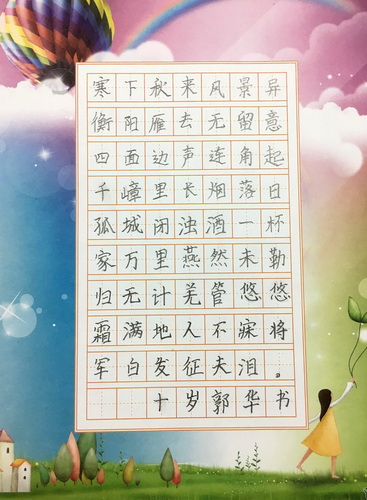 寒下秋来风景异
衡阳雁去无留意
四面边声连角起
千嶂里长烟落日
孤城闭浊酒一杯
家万里燕然未勒
归无计羌管悠悠
霜满地人不寐将
军白发征夫泪。
十岁郭华书